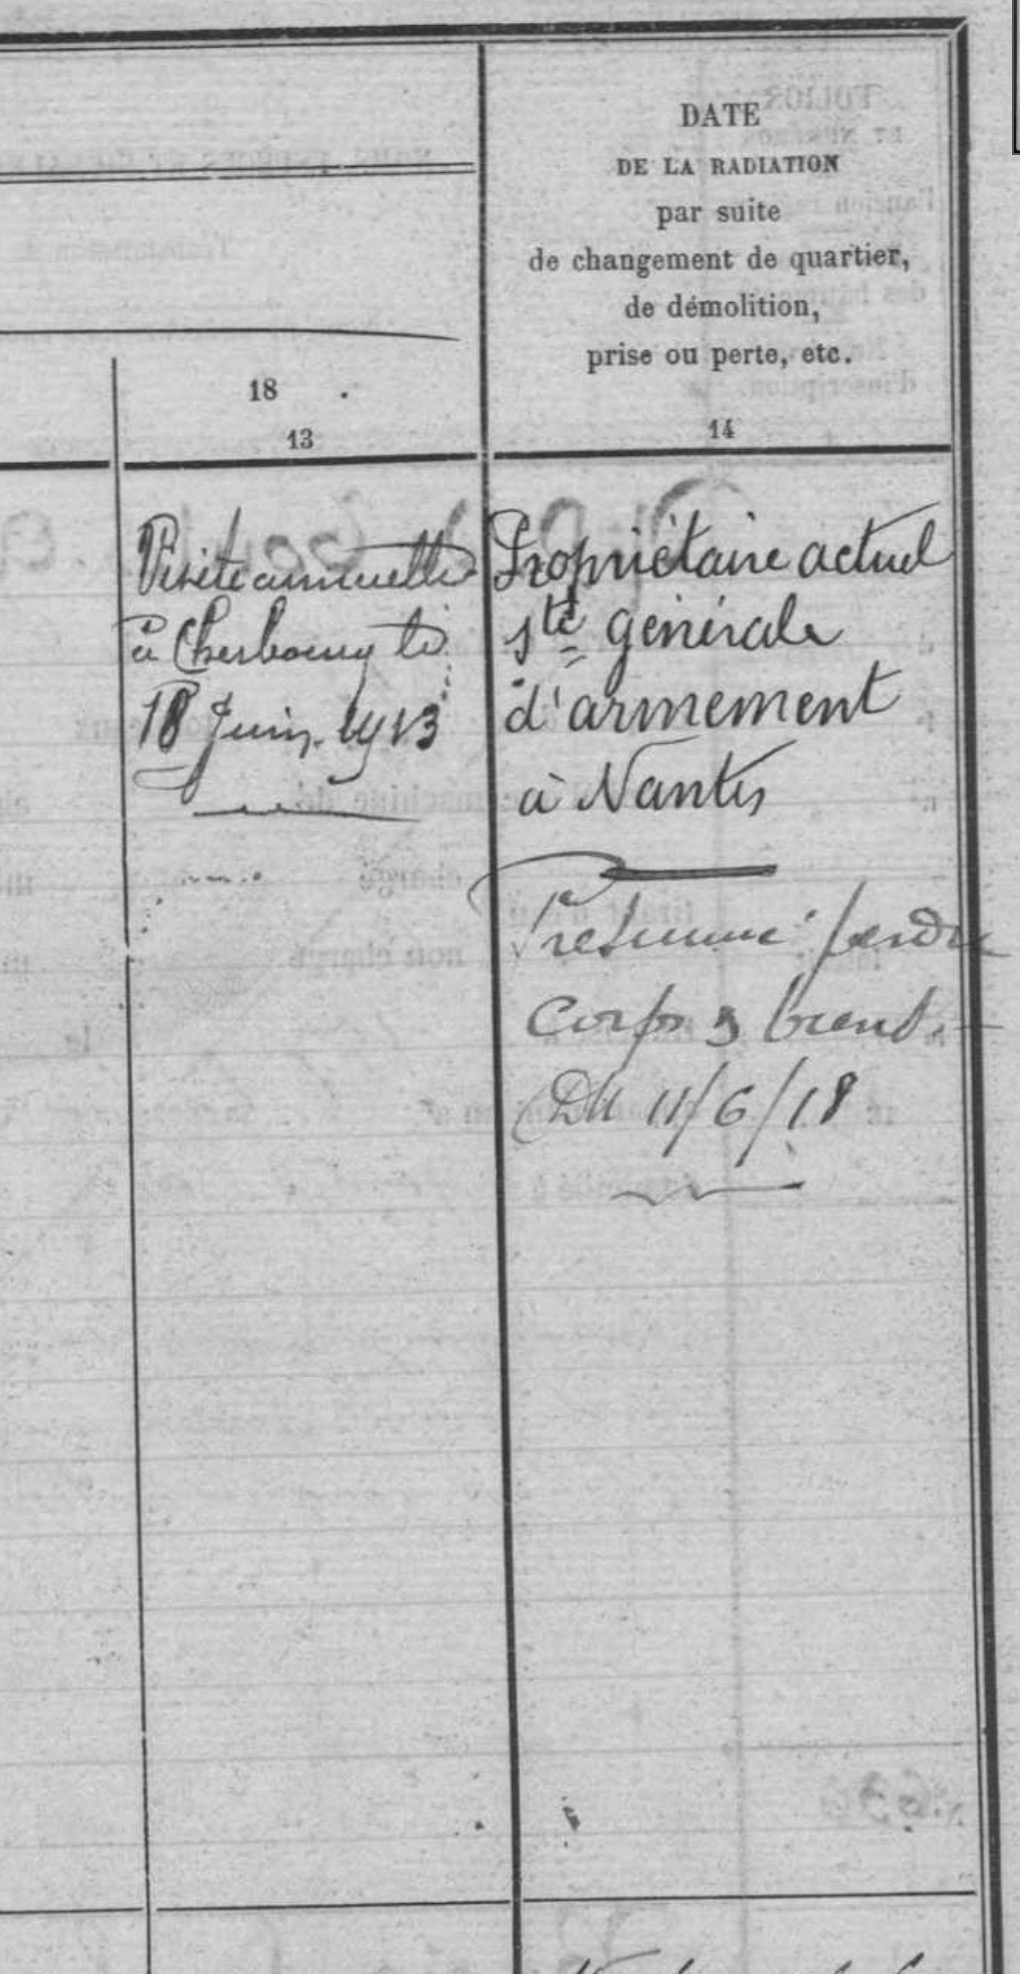 DATE
DE LA RADIATION
par suite
de changement de quartier,
de démolition,
prise ou perte, etc.
18
13
14
Visite annuelle
à Cherbourg le
18 Juin 1913
Propriétaire actuel
Sté générale
d'armement
à Nantes
Présumé perdu
Corps & biens.
DM 11/6/18